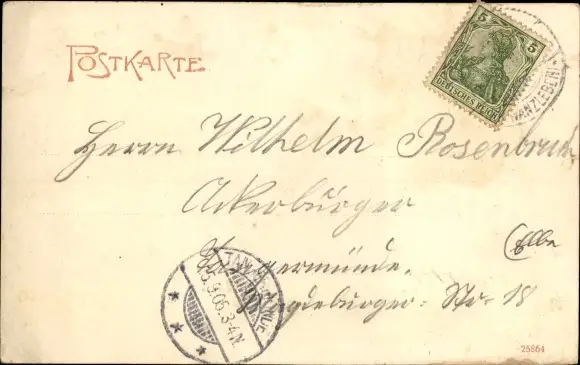 POSTKARTE
5 5
DEUTSCHES REICH
WANZLEBEN
Herrn Wilhelm Rosenbruch
Ackerbürger
Tangermünde.
(Elbe
Magdeburger-Str. 18
TANGERMÜNDE
5.9.05.3-4N.
25864